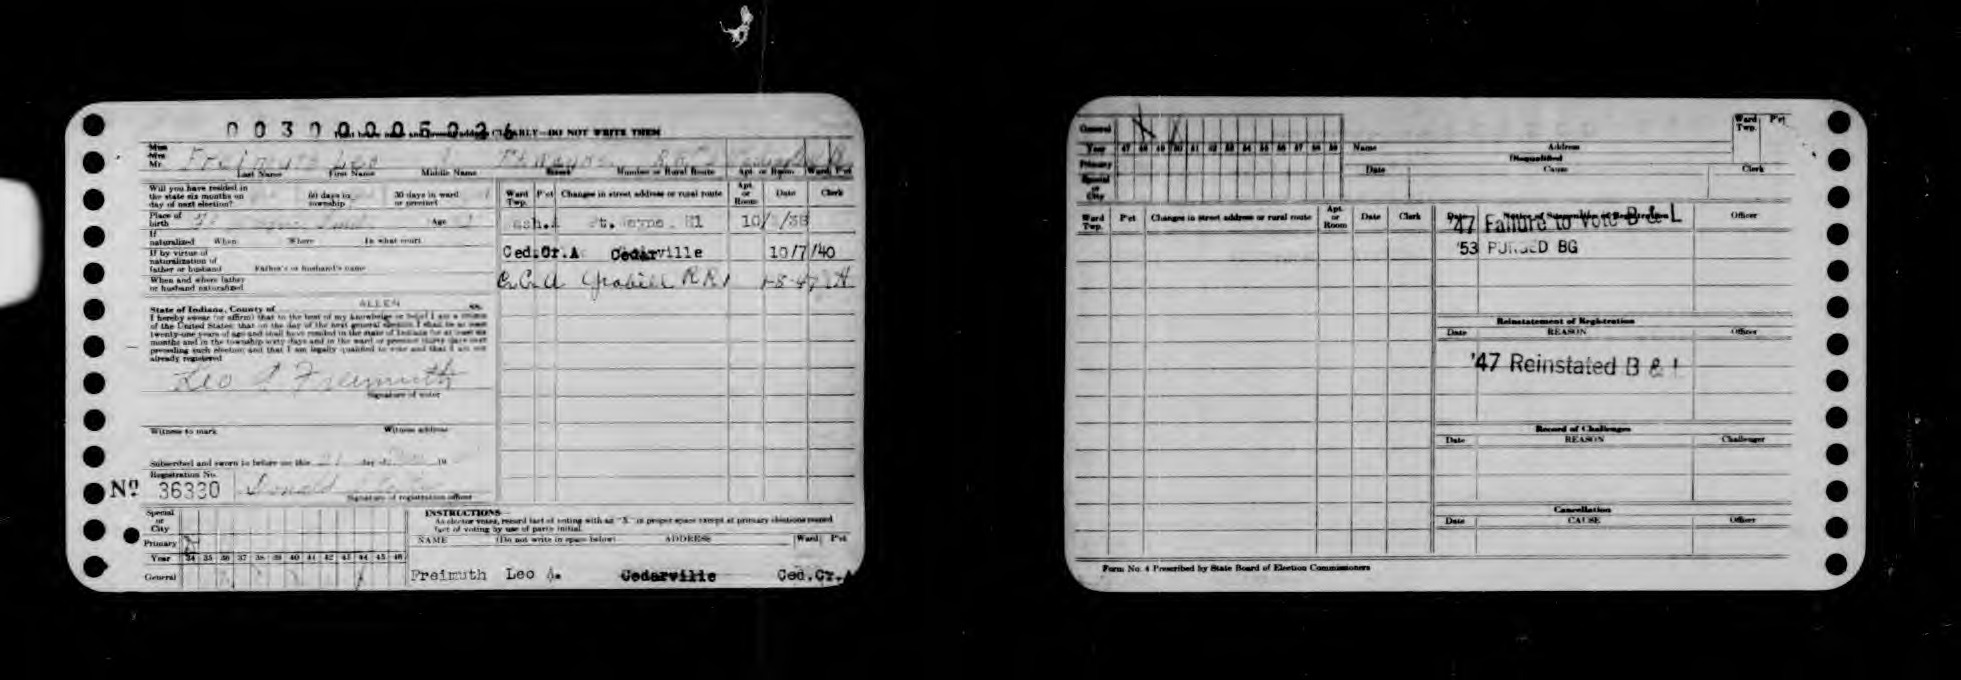 CLEARLY—DO NOT WRITE THEM
Miss
Mrs
Mr.
Freimuth Leo
Last Name First Name Middle Name Street Number or Rural Route Apt. or Room Ward P'ct
Will you have resided in
the state six months on
day of next election?
60 days in
township
30 days in ward
or precinct
Ward
Twp.
P'ct
Changes in street address or rural route
Apt.
or
Room
Date
Clerk
Place of
birth
Age
If
naturalized When Where In what court
If by virtue of
naturalization of
father or husband
Father's or husband's name
When and where father
or husband naturalized
Ced.Cr.A Cedarville 10/7/40
Grabill RR1
State of Indiana, County of ALLEN ss.
I hereby swear (or affirm) that to the best of my knowledge or belief I am a citizen
of the United States; that on the day of the next general election I shall be at least
twenty-one years of age and shall have resided in the state of Indiana for at least six
months and in the township sixty days and in the ward or precinct thirty days next
preceding such election; and that I am legally qualified to vote and that I am not
already registered
Leo Freimuth
Signature of voter
Witness to mark Witness address
Subscribed and sworn to before me this day of 19
Registration No.
Nº 36330 Donald
Signature of registration officer
Special
or
City
Primary
Year 34 35 36 37 38 39 40 41 42 43 44 45 46
General
INSTRUCTIONS—
As elector votes, record fact of voting with an "X" in proper space except at primary elections record
fact of voting by use of party initial.
NAME (Do not write in space below) ADDRESS Ward P'ct
Freimuth Leo Cedarville Ced.Cr.A
General
Year 47 48 49 50 51 52 53 54 55 56 57 58 59
Primary
Special
or
City
Name Address
Ward
Twp.
P'ct
Disqualified
Date Cause Clerk
Ward
Twp.
P'ct
Changes in street address or rural route
Apt.
or
Room
Date
Clerk
Date Notice of Suspension of Registration Officer
'47 Failure to Vote B & L
'53 PURGED BG
Reinstatement of Registration
Date REASON Officer
'47 Reinstated B & L
Record of Challenges
Date REASON Challenger
Cancellation
Date CAUSE Officer
Form No. 4 Prescribed by State Board of Election Commissioners